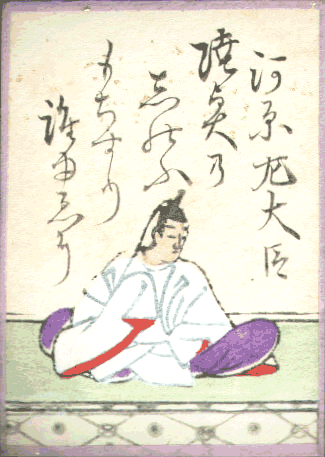 河原左大臣
陸奥乃
しのふ
もちすり
誰由ゑに